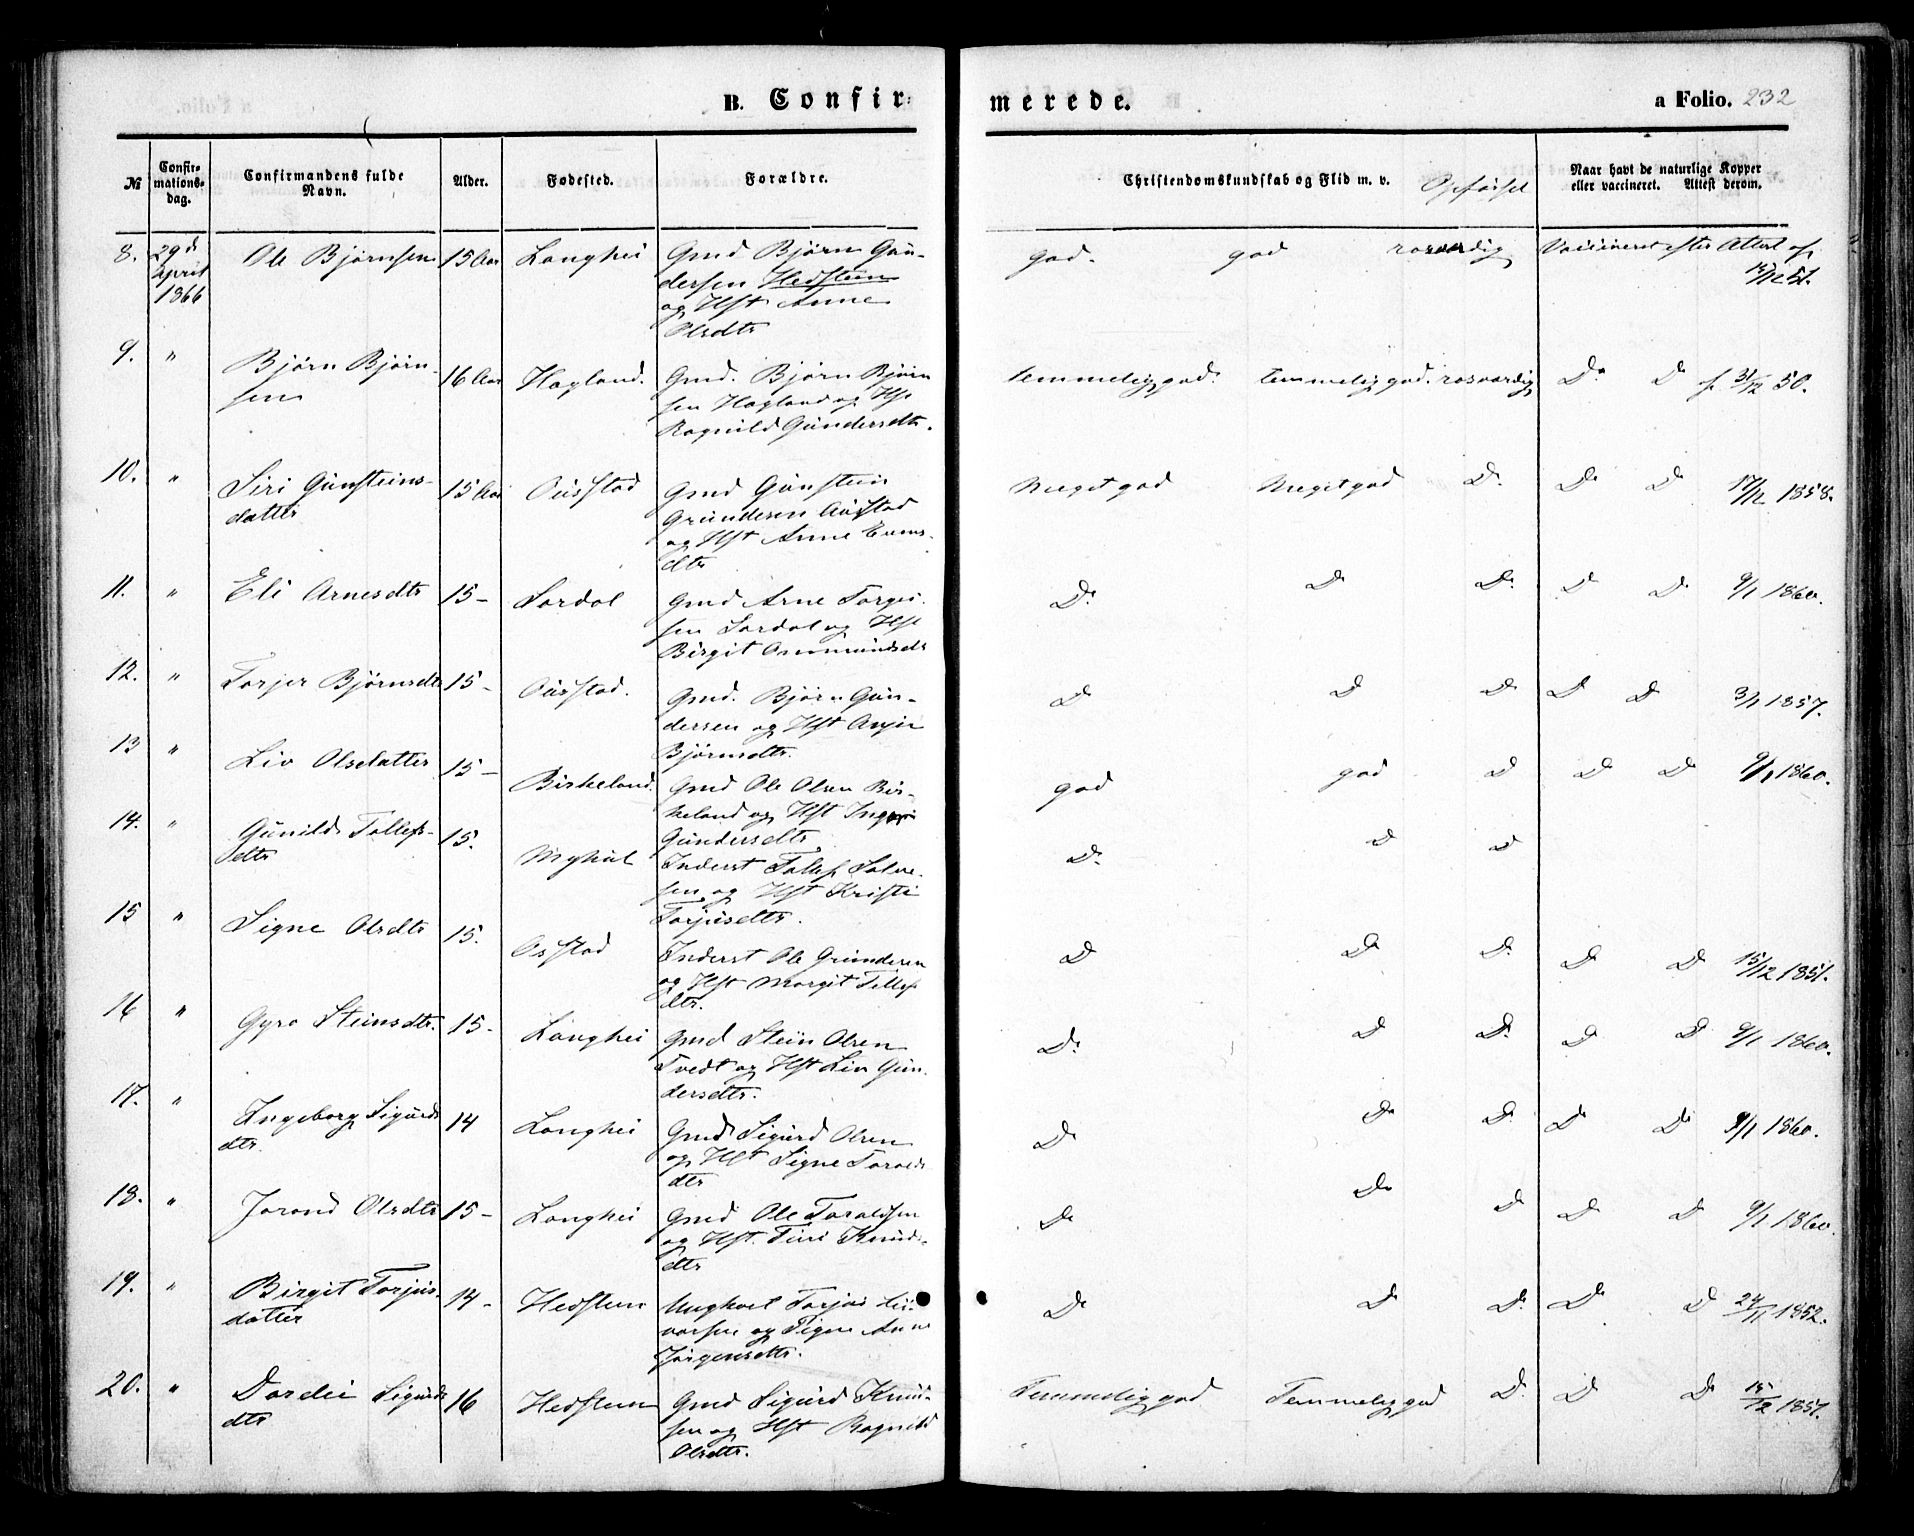 B. Confir=
merede.
a Folio. 232
№
Confir=
mations=
dag.
Confirmandens fulde
Navn.
Alder.
Fødested.
Forældre.
Christendomskundskab og Flid m. v.
Opførsel
Naar havt de naturlige Kopper
eller vaccineret. Attest derom.
8. 29d Ole Bjørnsen 15 Aar Langhei Gmd Bjørn Gün-
april dersen Hedsteen
1866 og Hst Anne
Olsdtr
god. god rosværdig Vaccineret efter Attest af
15/12 51.
9. " Bjørn Bjørn- 16 Aar Hagland. Gmd. Bjørn Bjørn
sen sen Hagland og Hst
Ragnild Gündersdtr.
temmelig god. temmelig god. rosværdig Do D f. 31/12 50.
10. " Siri Günsteins- 15 Aar Oüsstad Gmd Günstein
datter Gründersen Oüsstad
og Hst Anne
dtr
Meget god Meget god D. D D 17/12 1858.
11. " Eli Arnesdtr 15- Sordal Gmd Arne Torgri-
sen Sordal og Hst
Birgit Ommündsdtr
D. D D. D D 9/1 1860.
12. " Torjer Bjørnsdtr 15- Oüsstad. Gmd. Bjørn Gün-
dersen og Hst
Bjørnsdtr.
D D D D D 3/1 1857.
13 " Liv Olsdatter 15- Birkeland. Gmd Ole Olsen Bir-
keland og Hst
Gündersdtr
god god D D D 9/1 1860.
14. " Günild Tollefs- 15. Myhül Inderst Tollef Salve-
dtr sen og Hst Kristi
Torjüsdtr.
D. D D
15 " Signe Olsdtr 15. Osstad Inderst Ole Gündersen
og Hst Margit Tellef
dtr.
D D D. D D 15/12 1851.
16 " Gyro Steinsdtr. 15- Langhei Gmd Stein Olsen
Tvedt og Hst Liv Gün-
dersdtr.
D. D D. D D 9/1 1860.
17. " Ingeborg Sigürds 14 Langhei Gmd Sigürd Olsen
dtr. og Hst Signe Taralds
dtr
D D D D D 9/1 1860.
18. " Jorond Olsdtr 15- Langhei Gmd Ole Taraldsen
og Hst. Siri Knüds-
dtr
D D D D D 9/1 1860.
19. " Birgit Torjüs- 14- Hedsteen Ungkarl Torjüs
datter varsen og Pigen Anne
Jørgensdtr.
D D D. D D 24/11 1852.
20. " Dordei Sigürds 16 Hedsteen Gmd Sigürd Knüd-
dtr sen og Hst Ragnild
Olsdtr.
Temmelig god Temmelig god D. D D 15/12 1851.